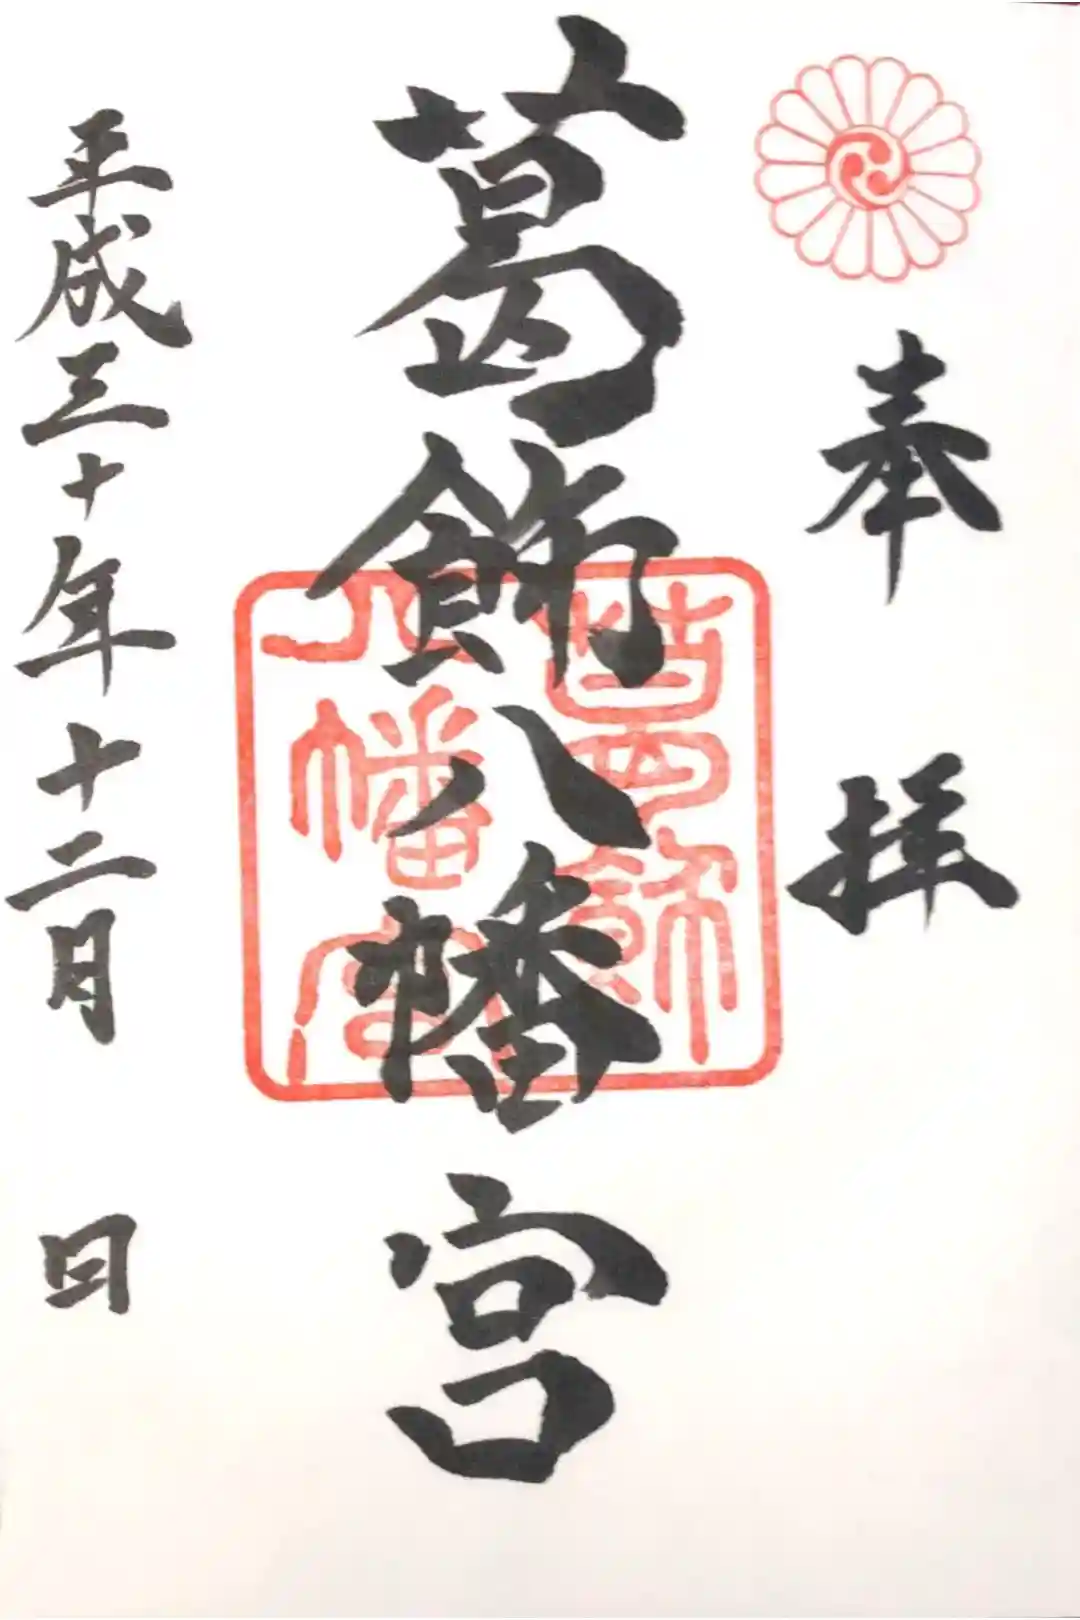 奉拝
葛飾八幡宮
葛飾
八幡宮
平成三十年十二月 日